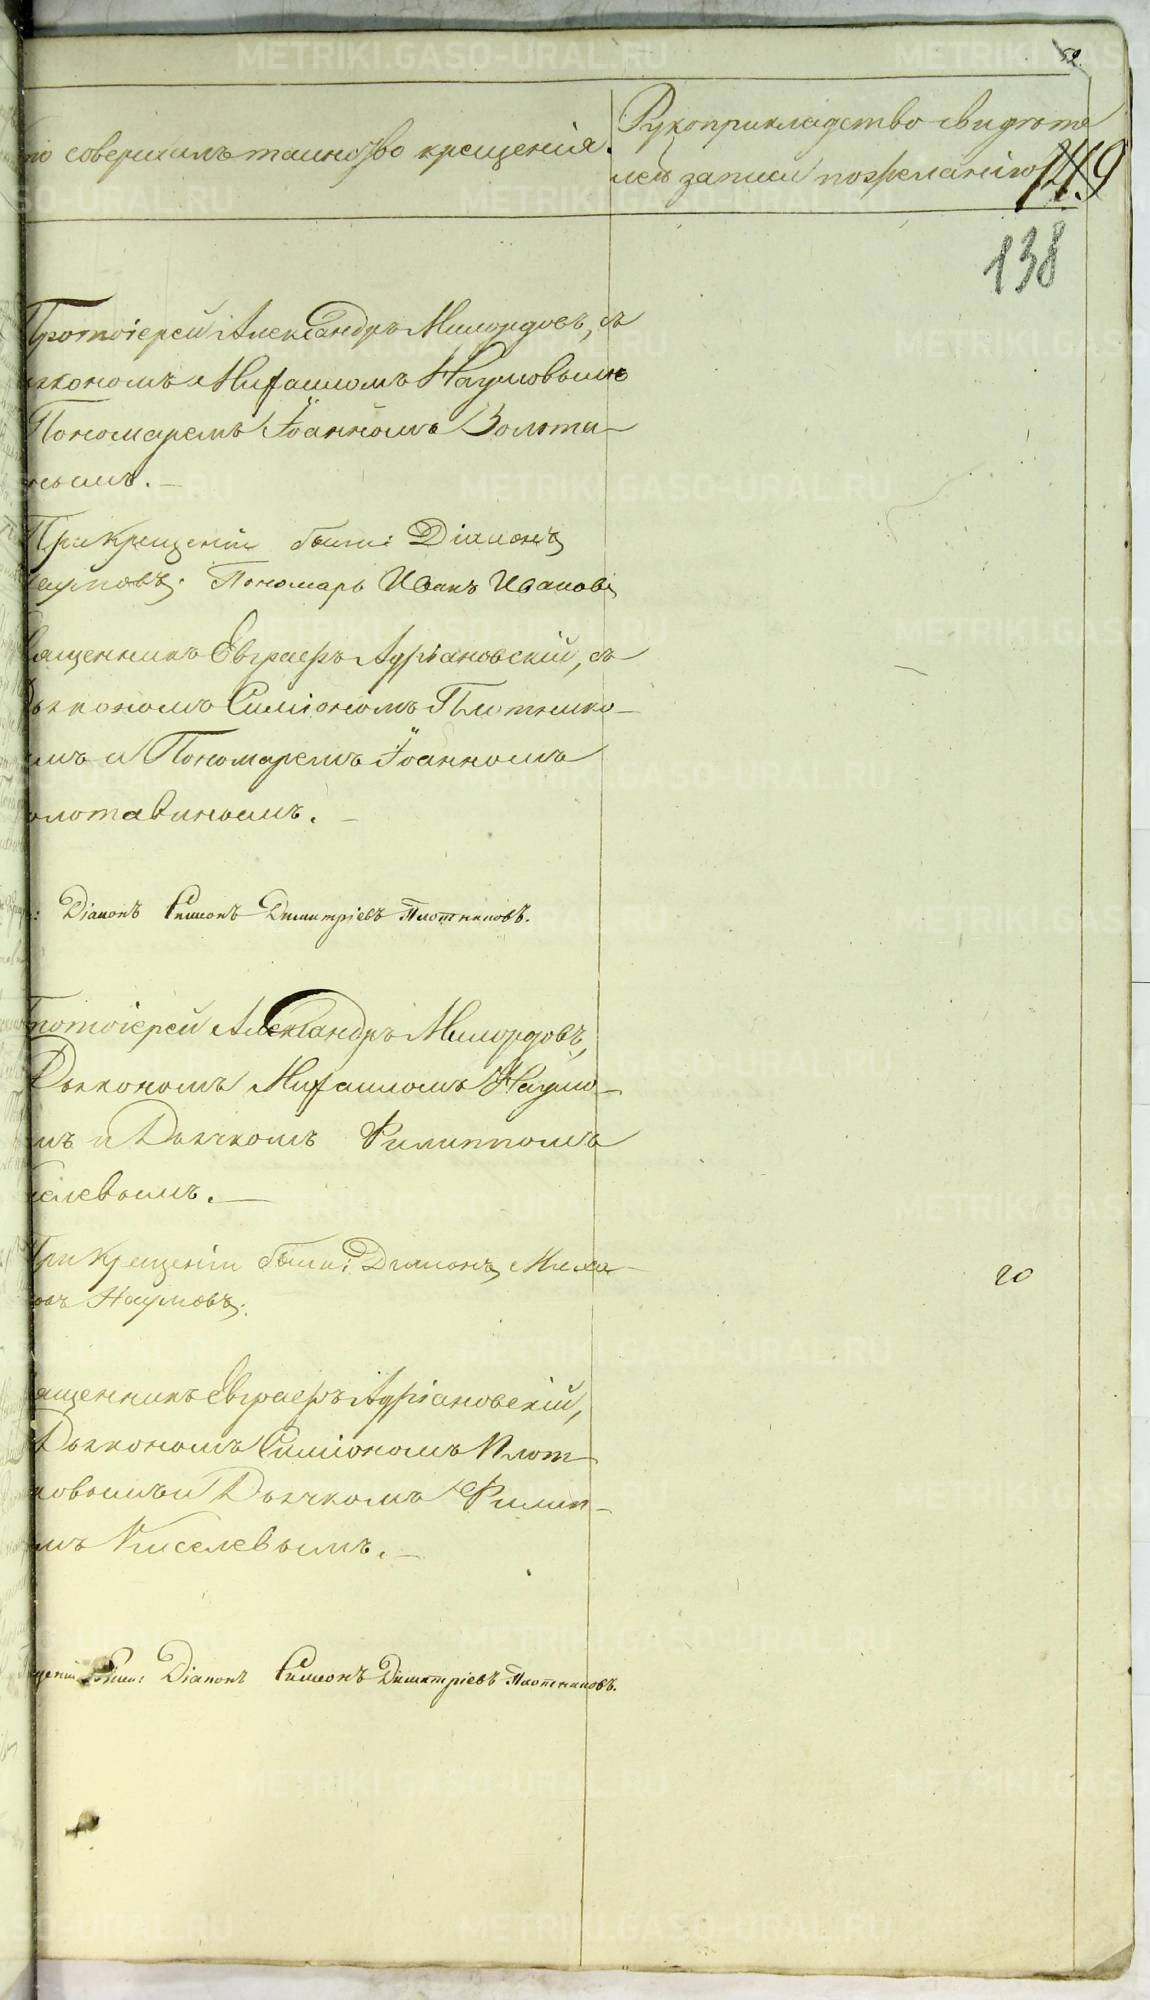 52.
то совершилъ таинство крещенія.
Рукоприкладство свидѣте
лей записи по желанію
149
138
Протоіерей Александръ Милордовъ, съ
іакономъ Михаиломъ Наумовымъ
Пономаремъ Іоанномъ Золота
нымъ.
При Крещеніи были: Діаконъ
аумовъ. Пономарь Иванъ Иванов
ященникъ Евграфъ Адріановскій, съ
Дьякономъ Симіономъ Плотнико
мъ и Пономаремъ Іоанномъ
олотавинымъ.
: Діаконъ Симеонъ Димитріевъ Плотниковъ.
ротоіерей Александръ Милордовъ,
Дьякономъ Михаиломъ Наумо
мъ и Дьячкомъ Филиппомъ
селевымъ.
При Крещеніи были: Діаконъ Миха
Наумовъ.
20
ященникъ Евграфъ Адріановскій,
Дьякономъ Симіономъ Плот
ковымъ и Дьячкомъ Филип
мъ Киселевымъ.
щеніи были: Діаконъ Симеонъ Димитріевъ Плотниковъ.
METRIKI.GASO-URAL.RU